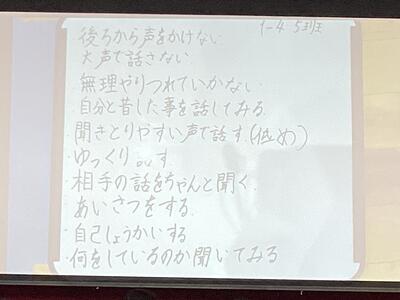 1-4 5班
後ろから声をかけない
大声で話さない
無理やりつれていかない
自分と昔した事を話してみる
聞きとりやすい声で話す(低め)
ゆっくり す
相手の話をちゃんと聞く
あいさつをする
自己しょうかいする
何をしているのか聞いてみる